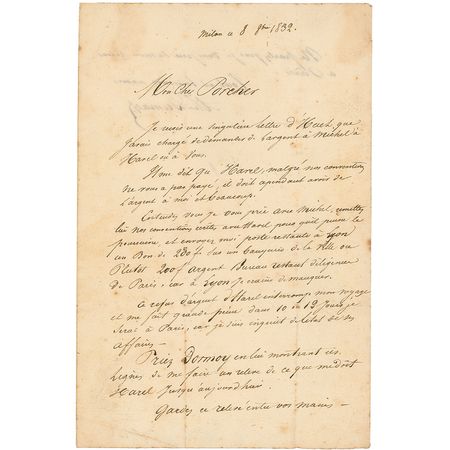 Milan ce 8 9bre 1832.
Mon Cher Porcher
Je reçois une singulière lettre d'Huet, que
j'avais chargé de demander de l'argent à Michel à
Harel ou à vous.
Il me dit que Harel, malgré nos conventions
ne vous a pas payé, il doit cependant avoir de
l'argent à moi et beaucoup.
Entendez vous je vous prie avec Michel, remettez
lui nos conventions avec Harel pour qu'il puisse le
poursuivre, et envoyez moi poste restante à Lyon
un Bon de 200f sur un banquier de la ville ou
Plutôt 200f argent Bureau restant diligence
de Paris, car à Lyon je crains de manquer.
Ce refus d'argent d'Harel interrompt mon voyage
et me fait grande peine dans 10 ou 12 Jours je
serai à Paris, car je suis inquiet de l'état de ses
affaires —
Priez Dormoy en lui montrant ces
lignes de me faire un relevé de ce que me doit
Harel jusqu'aujourd'hui.
Gardez ce relevé entre vos mains —